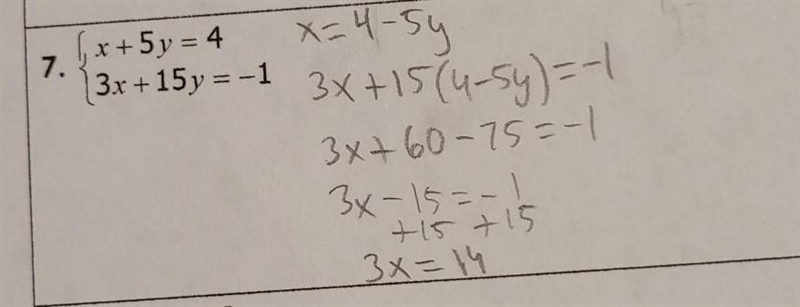 7. { x + 5y = 4
3x + 15y = −1
x = 4 − 5y
3x + 15(4 − 5y) = −1
3x + 60 − 75 = −1
3x − 15 = −1
+15 +15
3x = 14